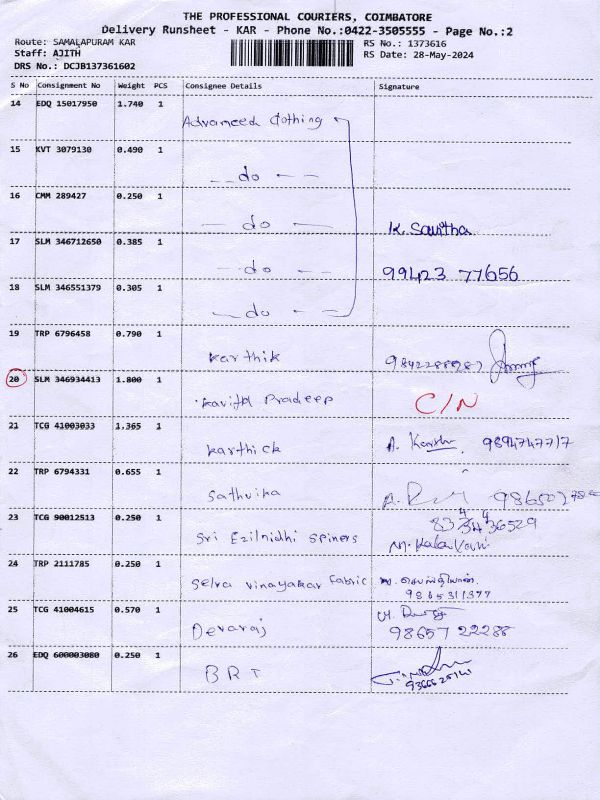 THE PROFESSIONAL COURIERS, COIMBATORE
Delivery Runsheet - KAR - Phone No.:0422-3505555 - Page No.:2
Route: SAMALAPURAM KAR
RS No.: 1373616
Staff: AJITH
RS Date: 28-May-2024
DRS No.: DCJB137361602
S No Consignment No Weight PCS Consignee Details Signature
14 EDQ 15017950 1.740 1
Advanced Clothing
15 KVT 3079130 0.490 1
do
16 CMM 289427 0.250 1
do K. Savitha
17 SLM 346712650 0.385 1
do 99423 77656
18 SLM 346551379 0.305 1
do
19 TRP 6796458 0.790 1
Karthik
20 SLM 346934413 1.800 1
Kavitha Pradeep C/N
21 TCG 41003033 1.365 1
Karthick 9894747717
22 TRP 6794331 0.655 1
Sathvika
23 TCG 90012513 0.250 1
Sri Ezilnidhi Spiners
24 TRP 2111785 0.250 1
Selva Vinayakar Fabric
9865311377
25 TCG 41004615 0.570 1
Devaraj 98657 22288
26 EDQ 600003080 0.250 1
BRT